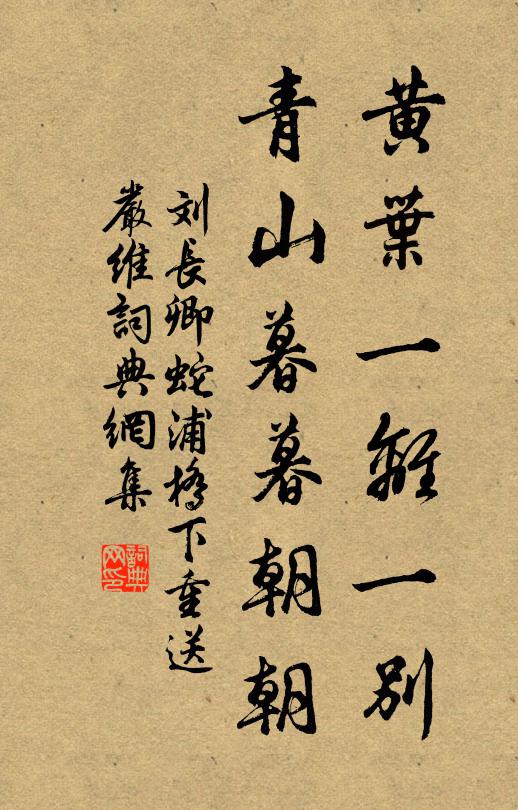 黃葉一離一別
青山暮暮朝朝
刘長卿蛇浦橋下重送
嚴維詞典網集
詞典
网印